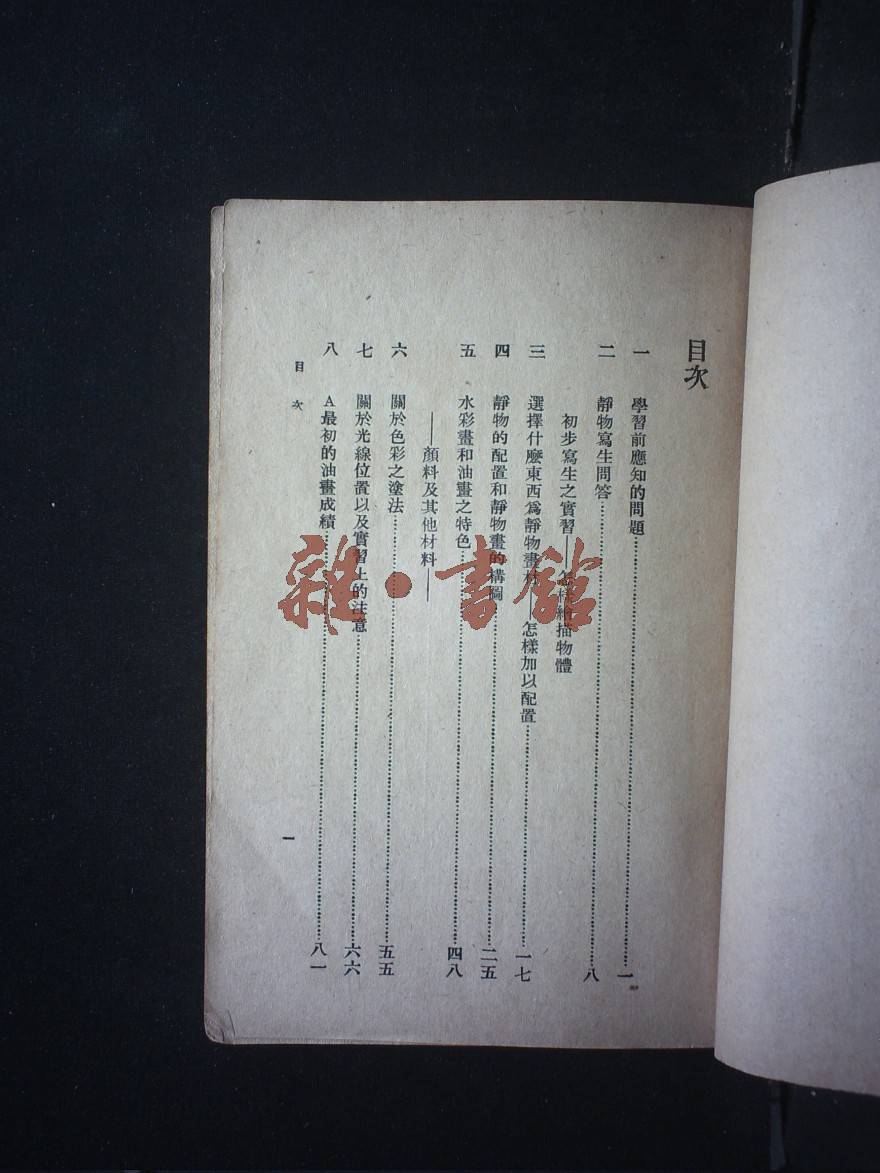 目次
一 學習前應知的問題……一
二 靜物寫生問答……八
初步寫生之實習——怎樣繪描物體
三 選擇什麼東西爲靜物畫材——怎樣加以配置……一七
四 靜物的配置和靜物畫的構圖……二五
五 水彩畫和油畫之特色……四八
——顏料及其他材料——
六 關於色彩之塗法……五五
七 關於光線位置以及實習上的注意……六六
八 A最初的油畫成績……八一
目次
一
雜·書館